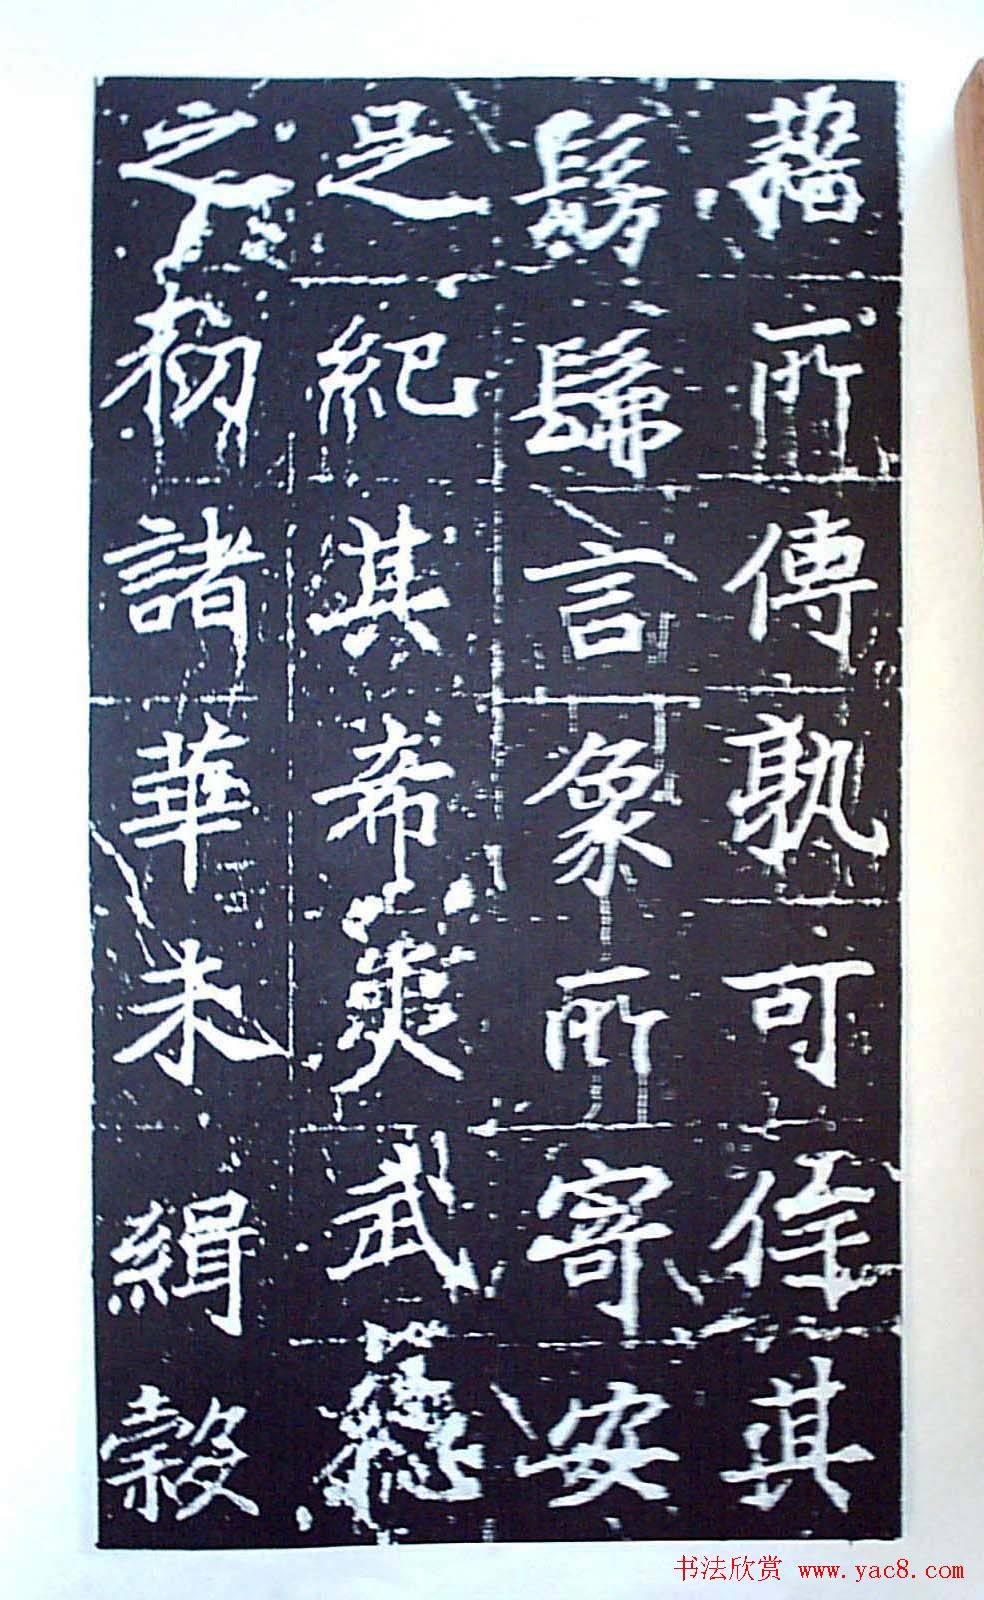 藉所傳孰可侔其
髣髴言象所寄安
足紀其希夷武德
之初諸華未緝穀
书法欣赏 www.yac8.com